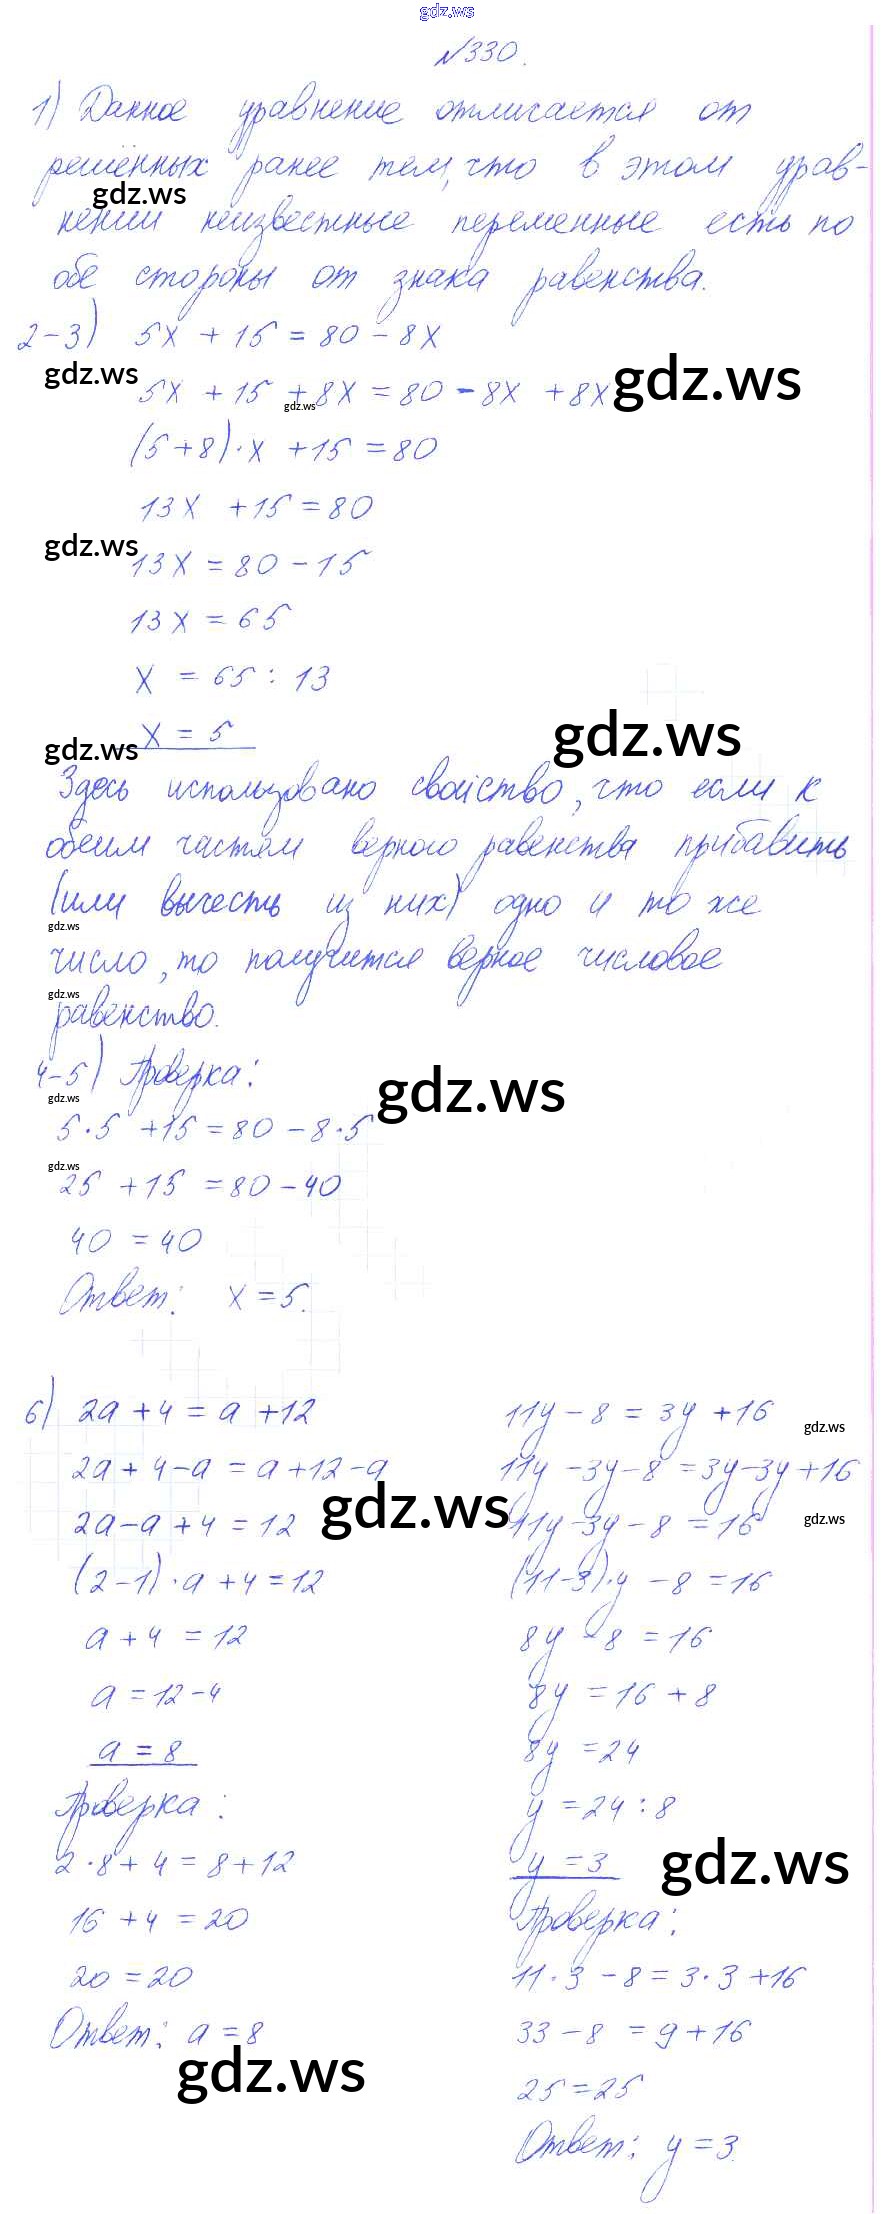 gdz.ws
№330.
1) Данное уравнение отличается от
решённых ранее тем, что в этом урав-
gdz.ws
нении неизвестные переменные есть по
обе стороны от знака равенства.
2-3) 5x + 15 = 80 - 8x
gdz.ws
5x + 15 + 8x = 80 - 8x + 8x
gdz.ws
gdz.ws
(5+8)·x + 15 = 80
13x + 15 = 80
gdz.ws
13x = 80 - 15
13x = 65
x = 65 : 13
x = 5
gdz.ws
gdz.ws
Здесь использовано свойство, что если к
обеим частям верного равенства прибавить
(или вычесть из них) одно и то же
gdz.ws
число, то получится верное числовое
gdz.ws
равенство.
4-5) Проверка:
gdz.ws
gdz.ws
5·5 + 15 = 80 - 8·5
gdz.ws
25 + 15 = 80 - 40
40 = 40
Ответ: x = 5.
6) 2a + 4 = a + 12
2a + 4 - a = a + 12 - a
gdz.ws
2a - a + 4 = 12
(2-1)·a + 4 = 12
a + 4 = 12
a = 12 - 4
a = 8
Проверка:
2·8 + 4 = 8 + 12
16 + 4 = 20
20 = 20
Ответ: a = 8
gdz.ws
11y - 8 = 3y + 16
gdz.ws
11y - 3y - 8 = 3y - 3y + 16
11y - 3y - 8 = 16
gdz.ws
(11-3)·y - 8 = 16
8y - 8 = 16
8y = 16 + 8
8y = 24
y = 24 : 8
y = 3
gdz.ws
Проверка:
11·3 - 8 = 3·3 + 16
33 - 8 = 9 + 16
25 = 25
Ответ: y = 3.